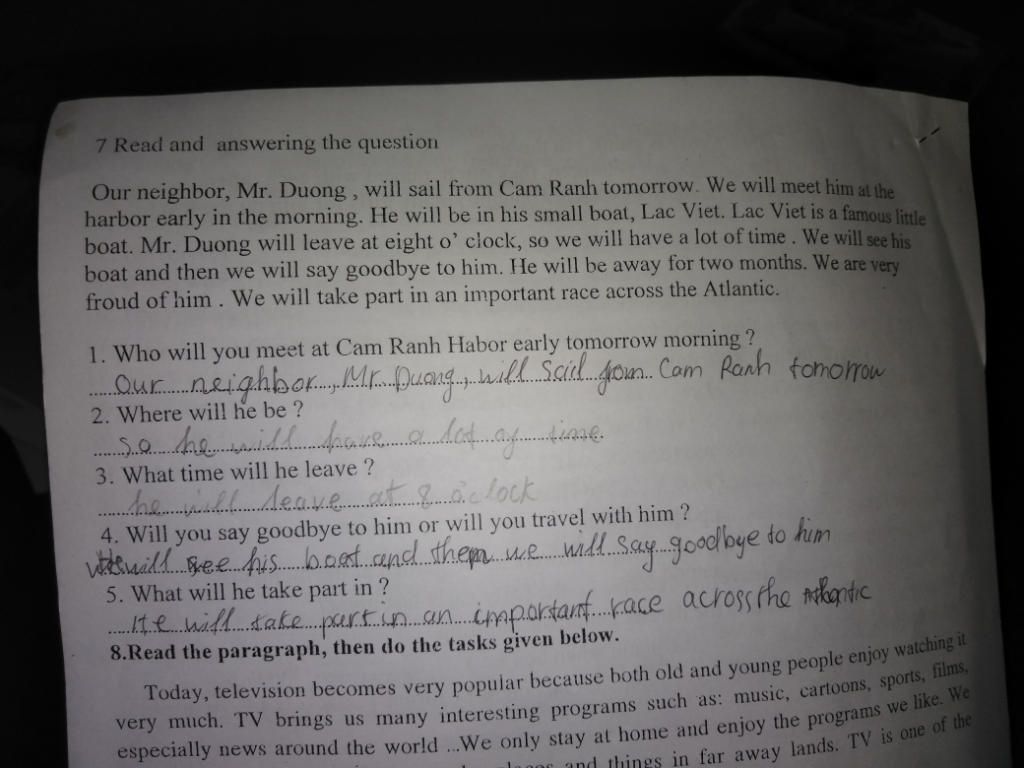 7 Read and answering the question
Our neighbor, Mr. Duong , will sail from Cam Ranh tomorrow. We will meet him at the
harbor early in the morning. He will be in his small boat, Lac Viet. Lac Viet is a famous little
boat. Mr. Duong will leave at eight o' clock, so we will have a lot of time . We will see his
boat and then we will say goodbye to him. He will be away for two months. We are very
froud of him . We will take part in an important race across the Atlantic.
1. Who will you meet at Cam Ranh Habor early tomorrow morning ?
Our neighbor, Mr. Duong, will sail from Cam Ranh tomorrow
2. Where will he be ?
so he will have a lot of time.
3. What time will he leave ?
he will leave at 8 o'clock
4. Will you say goodbye to him or will you travel with him ?
will see his boat and then we will say goodbye to him
5. What will he take part in ?
He will take part in an important race across the Atlantic
8.Read the paragraph, then do the tasks given below.
Today, television becomes very popular because both old and young people enjoy watching it
very much. TV brings us many interesting programs such as: music, cartoons, sports, films,
especially news around the world ...We only stay at home and enjoy the programs we like. We
and things in far away lands. TV is one of the